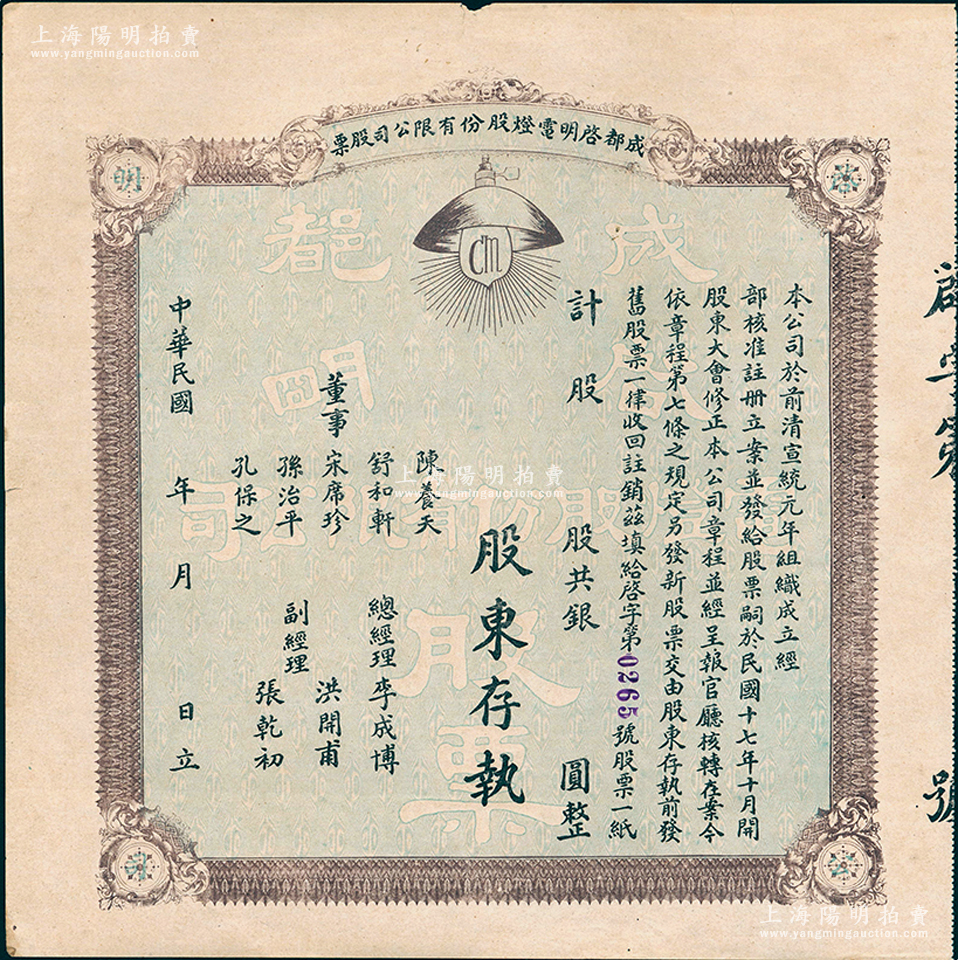 上海陽明拍賣
www.yangmingauction.com
成都启明電燈股份有限公司股票
啓
明
CM
成都
啓明
電燈股份有限公司
股票
本公司於前清宣統元年組織成立經
部核准註册立案並發給股票嗣於民國十七年十月開
股東大會修正本公司章程並經呈報官廳核轉存案今
依章程第七條之規定另發新股票交由股東存執前發
舊股票一律收回註銷茲填給啓字第0265號股票一紙
計股 股共銀 圓整
股東存執
董事
陳養天
舒和軒
宋席珍
孫治平
孔保之
總經理 李成博
副經理
洪開甫
張乾初
中華民國 年 月 日立
公
司
號
上海陽明拍賣
www.yangmingauction.com
上海陽明拍賣
www.yangmingauction.com